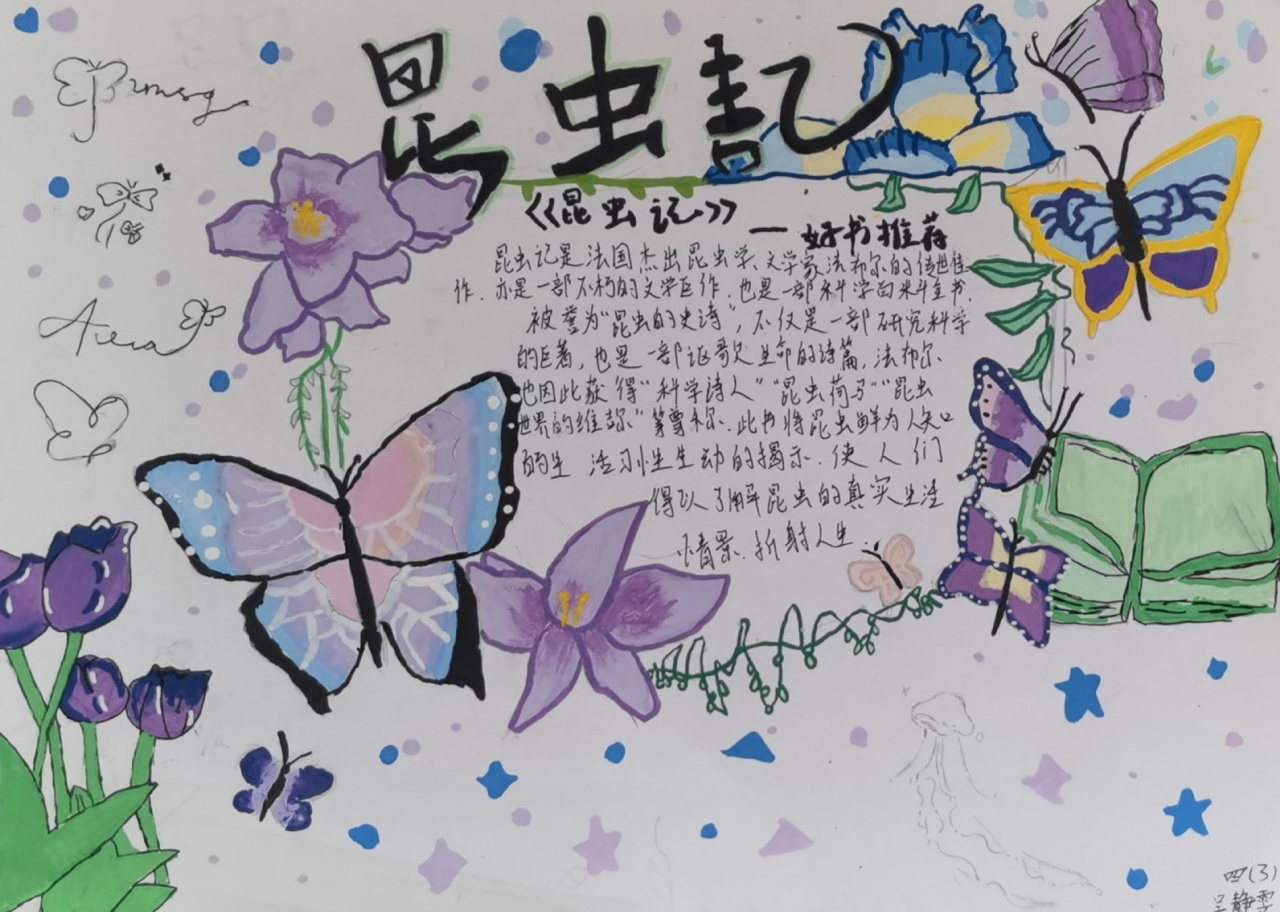 昆虫記
《昆虫记》
—好书推荐
昆虫记是法国杰出昆虫学、文学家法布尔的传世佳
作.亦是一部不朽的文学巨作.也是一部科学百科全书.
被誉为“昆虫的史诗”,不仅是一部研究科学
的巨著,也是一部讴歌生命的诗篇,法布尔
也因此获得“科学诗人”“昆虫荷马”“昆虫
世界的维尔”等尊称.此书将昆虫鲜为人知
的生活习性生动的揭示.使人们
得以了解昆虫的真实生活
情景.折射人生.
四(3)
吴静雯